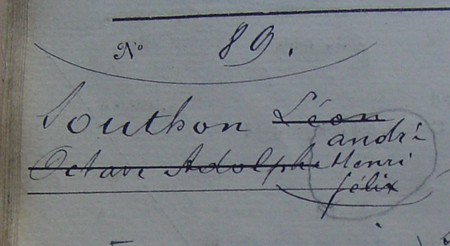 N° 89.
Southon Léon
andré
Octave Adolphe Henri
félix